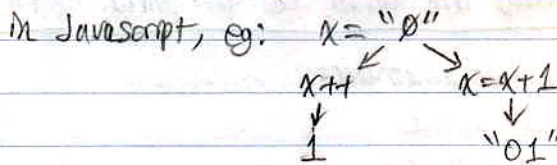 in Javascript, eg: x = "0"
x++ x=x+1
1 "01"